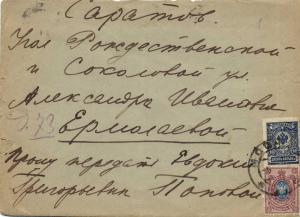 Саратов.
Угол Рождественской
и Соколовой ул.
Александре Ивановне
Д. 73
Ермолаевой
Прошу передать Евдокии
Григорьевне Поповой